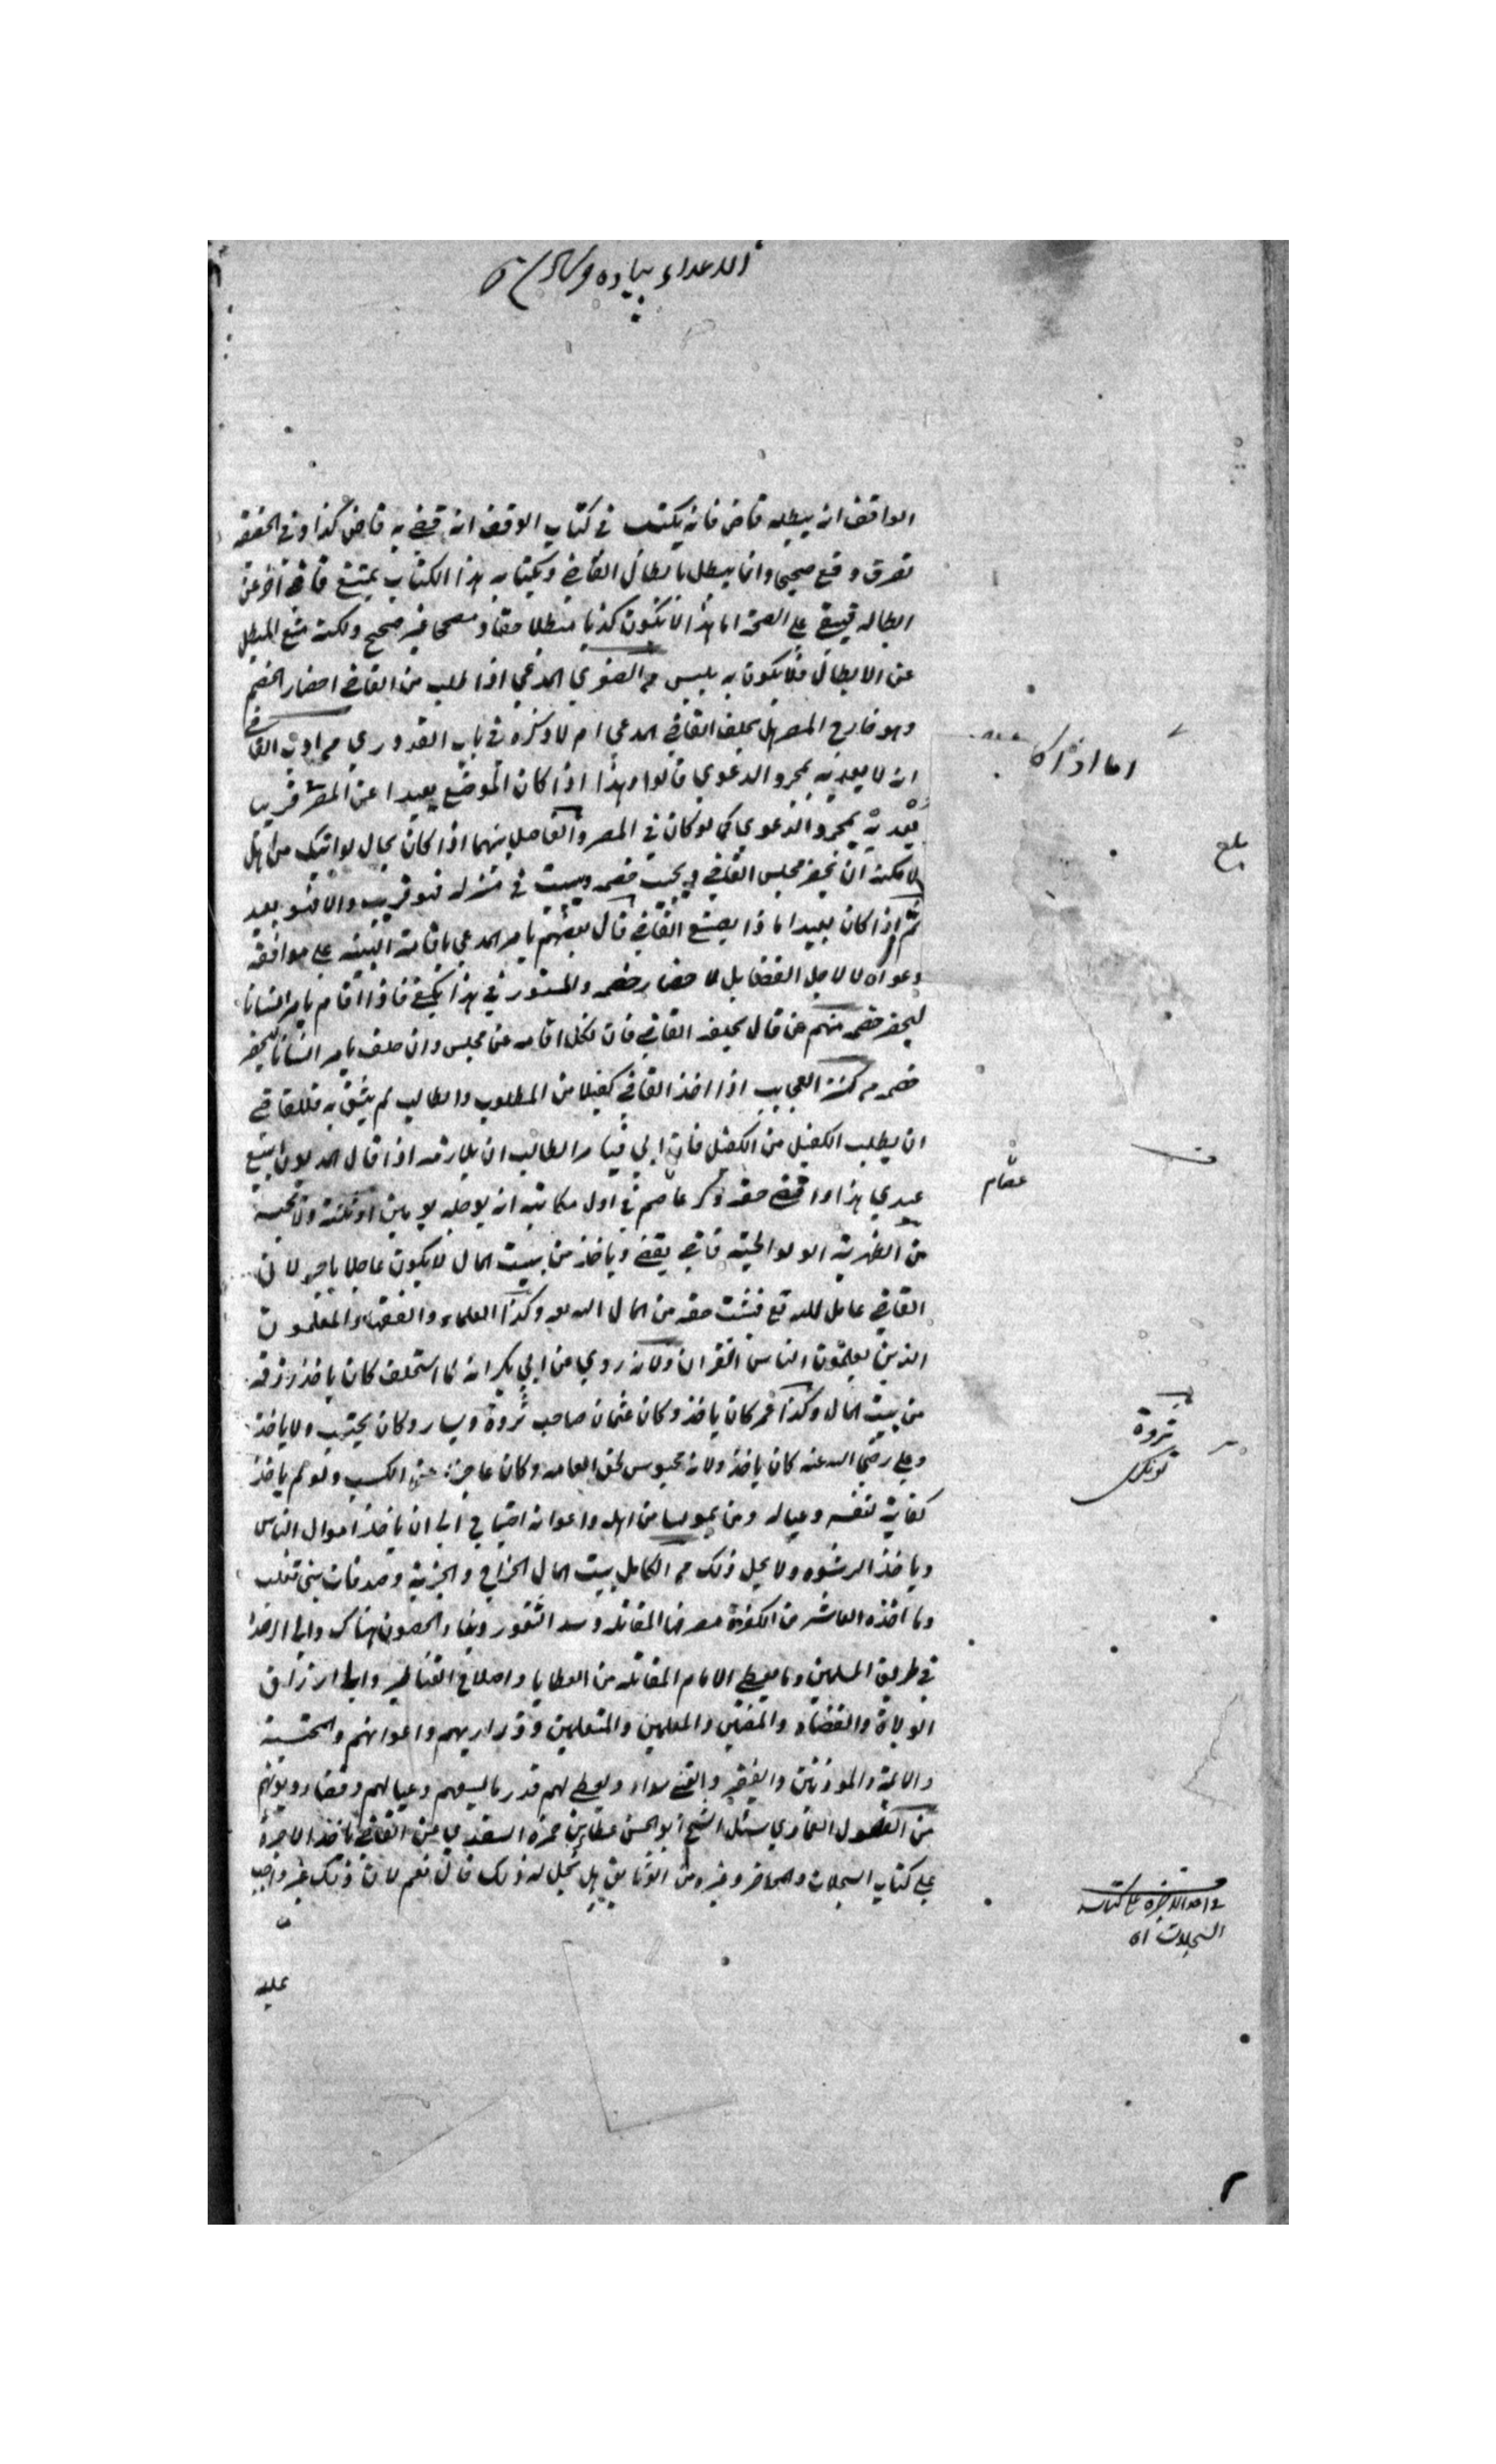 الواقف ان يبطله قاض فانه يكتب في كتاب الوقف انه قضى به قاض كذا وفي الحقيقة
تصرف وقع صحيحا وانما يبطل بابطال القاضي وبكتابه هذا الكتاب يمتنع قاض آخر عن
ابطاله فيبقى على الصحة اما هذا لا يكون كذبا مبطلا حقا و مصححا غير صحيح ولكنه منع المبطل
عن الابطال فلا يكون به باس من الصغرى المدعي اذا طلب من القاضي احضار الخصم
وهو خارج المصر هل يحلف القاضي المدعي ام لا وذكره في باب العدوي من ادب القاضي
انه لا يعديه بمجرد الدعوى قالوا وهذا اذا كان الموضع بعيدا عن المصر قريب
يعديه بمجرد الدعوى كما لو كان في المصر والفاصل بينهما اذا كان بحال لو ابتكر من اهله
لامكنه ان يحضر مجلس القاضي ويجيب خصمه ويبيت في منزله فهو قريب والا فهو بعيد
ثم اذا كان بعيدا ماذا يصنع القاضي قال بعضهم يامر المدعي باقامة البينة على موافقة
دعواه لا لاجل القضا بل لاحضار خصمه والمستور في هذا يكفي فاذا اقام يامر انسانا
ليحضر خصمه منهم من قال يحلفه القاضي فان نكل اقامه عن مجلسه وان حلف يامر انسانا ليحضر
خصمه من اذا اخذ القاضي كفيلا من المطلوب والطالب لم يثق به فللقاضي
ان يطلب الكفيل من الكفيل فان ابى الطالب ان يلازمه اذا قال المديون ابيع
عبدي هذا واقضي حقه ذكر عصام في اول مكاتبه انه يؤجله يومين او ثلثة ولا يحبسه
من الظهيرية الولوالجية قاض يقضي وياخذ من بيت المال لا يكون عاملا باجر لان
القاضي عامل لله تع فيثبت حقه من المال الله وكذا العلماء والفقهاء والمعلمون
الذين يعلمون الناس القران ولانه روي عن ابي بكر انه لما استخلف كان ياخذ رزقه
من بيت المال وكذا عمر كان ياخذ وكان عثمان صاحب ثروة ويسار وكان يحتسب ولا ياخذ
وعلي رضي الله عنه كان ياخذ ولانه محبوس لحق العامه وكان عاجزا عن الكسب ولو لم ياخذ
كفاية لنفسه وعياله ومن يمونها من اهله واعوانه احتياج الى ان ياخذ اموال الناس
وياخذ الرشوه ولا يحل ذلك من الكامل بيت المال الخراج والجزية وصدقات بني تغلب
وما اخذه العاشر من الكفرة مصرفها المقاتلة وسد الثغور وبناء الحصون هناك والى
في طريق المسلمين وما يعطي الامام المقاتلة من العطايا واصلاح القناطر والى ارزاق
الولاة والقضاة والمفتين والمعلمين والمتعلمين وذراريهم واعوانهم والمحتسبة
والائمة والموذنين والفقير والغني سواء ويعطى لهم قدر ما يسعهم وعيالهم وقضاء ديونهم
من الفصول العمادي سئل الشيخ ابو الحسن عطا بن حمزه السغدي عن القاضي ياخذ الاجرة
على كتاب السجلات والمحاضر وغيره من الوثايق هل يحل له ذلك قال نعم لان ذلك غير واجب
عليه
اما اذا كا
بلع
عصام
ثروة
توانكر
في اخذ الاجره على كتابه
السجلات اه